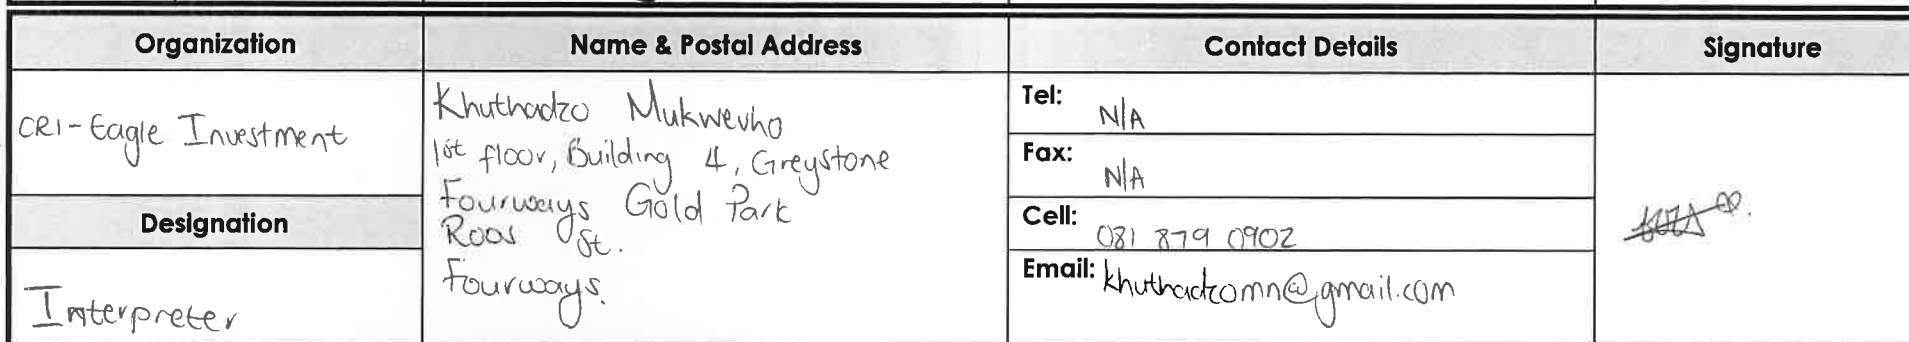 Organization
Name & Postal Address
Contact Details
Signature
CRI-Eagle Investment
Khuthadzo Mukwevho
1st floor, Building 4, Greystone
Fourways Gold Park
Roos St.
Fourways.
Designation
Interpreter
Tel: N/A
Fax: N/A
Cell: 081 879 0902
Email: khuthadzomn@gmail.com